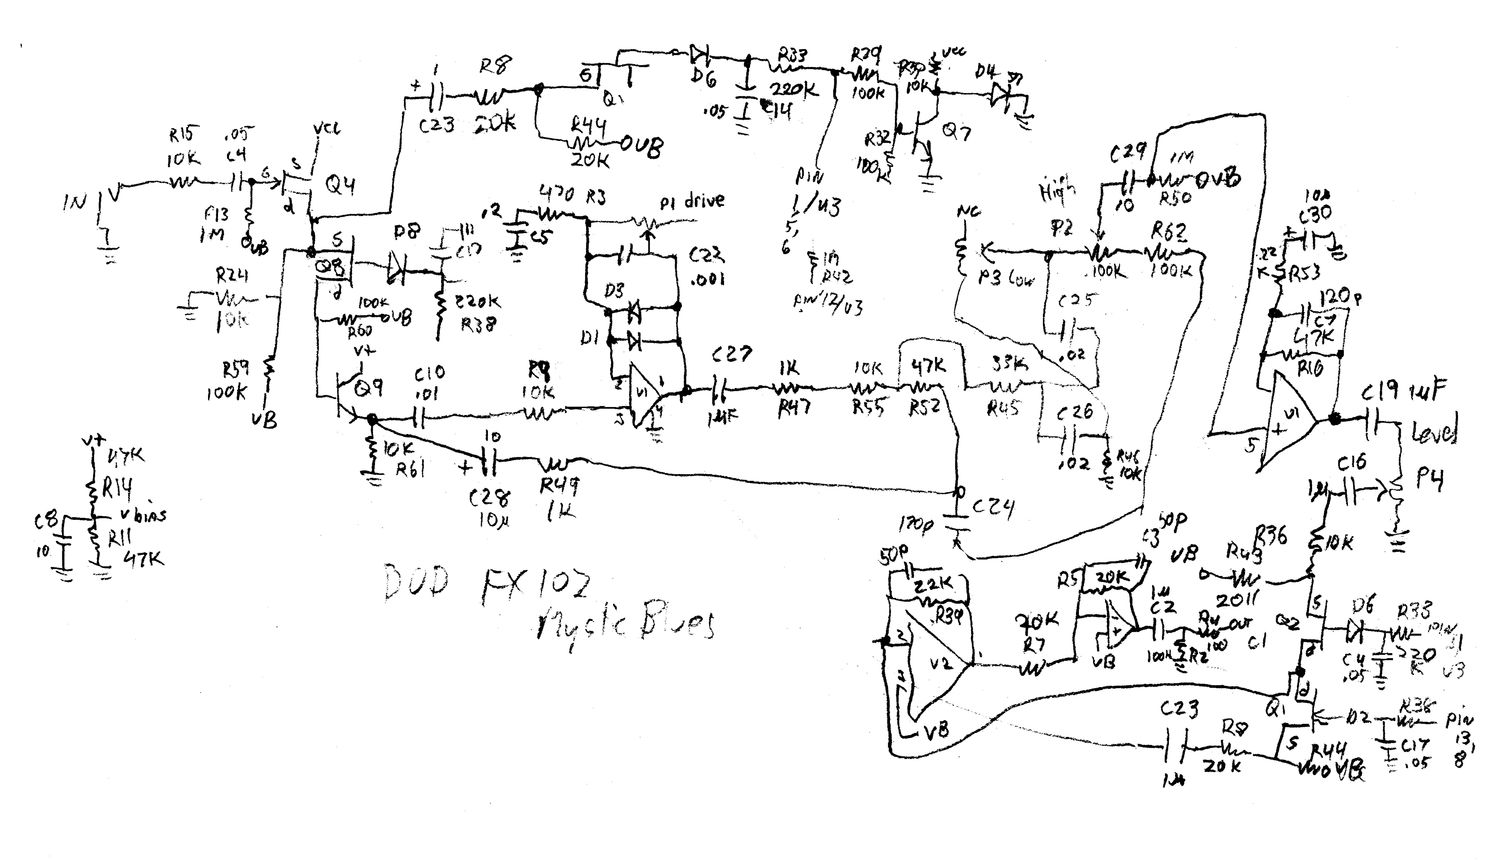 1
R8
+
C23
20K
G
Q1
R44
20K
OVB
D6
R33
220K
.05
C14
R29
100K
VCC
10K
D4
Q7
R32
100K
PIN
1/U3
5,
6
1M
R42
PIN 12/U3
R15
10K
.05
C4
VCC
G
S
d
Q4
IN
1M
OVB
R24
10K
S
Q8
d
D8
C17
220K
R38
100K
OVB
R60
V+
Q9
R59
100K
VB
.2
C5
470
R3
P1 drive
C22
.001
D3
D1
C10
.01
R9
10K
2
3
U1
1
4
C27
1µF
1K
R47
10K
R55
47K
R52
33K
R45
10K
R61
10
+
C28
10µ
R49
1K
NC
P3 LOW
High
P2
100K
C29
.10
1M
OVB
R50
R62
100K
C25
.02
C26
.02
R46
10K
C24
120p
10µ
C30
+
R53
120p
C7
47K
R16
U1
+
5
C19 1µF
Level
P4
C16
1µ
10K
V+
47K
R14
V BIAS
C8
10
R11
47K
DOD FX102
Mystic Blues
50p
22K
R39
2
U2
1
VB
R7
R5
20K
C3 50p
VB
1µ
C2
100K
R2
100
OUT
C1
VB
R36
R43
S
Q2
D6
R33
220
K
C4
.05
U3
d
d
Q1
S
D2
R38
C17
.05
PIN
13,
8
R44
OVB
C23
1µ
R8
20K